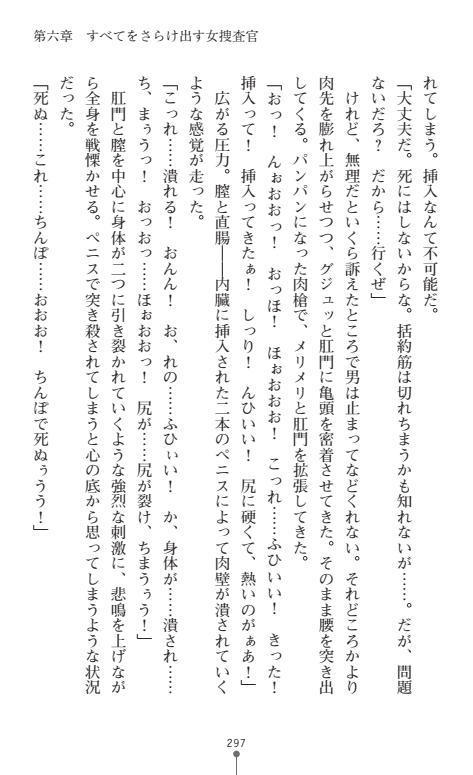 第六章　すべてをさらけ出す女捜査官
れてしまう。挿入なんて不可能だ。
「大丈夫だ。死にはしないからな。括約筋は切れちまうかも知れないが……。だが、問題
ないだろ？　だから……行くぜ」
　けれど、無理だといくら訴えたところで男は止まってなどくれない。それどころかより
肉先を膨れ上がらせつつ、グジュッと肛門に亀頭を密着させてきた。そのまま腰を突き出
してくる。パンパンになった肉槍で、メリメリと肛門を拡張してきた。
「おっ！　んぉおおっ！　おっほ！　ほぉおおお！　こっれ……ふひいい！　きった！
挿入って！　挿入ってきたぁ！　しっり！　んひいい！　尻に硬くて、熱いのがぁあ！」
　広がる圧力。膣と直腸――内臓に挿入された二本のペニスによって肉壁が潰されていく
ような感覚が走った。
「こっれ……潰れる！　おんん！　お、れの……ふひぃい！　か、身体が……潰され……
ち、まぅうっ！　おっおっ……ほぉおおっ！　尻が……尻が裂け、ちまうぅう！」
　肛門と膣を中心に身体が二つに引き裂かれていくような強烈な刺激に、悲鳴を上げなが
ら全身を戦慄かせる。ペニスで突き殺されてしまうと心の底から思ってしまうような状況
だった。
「死ぬ……これ……ちんぽ……おおお！　ちんぽで死ぬぅうう！」
297